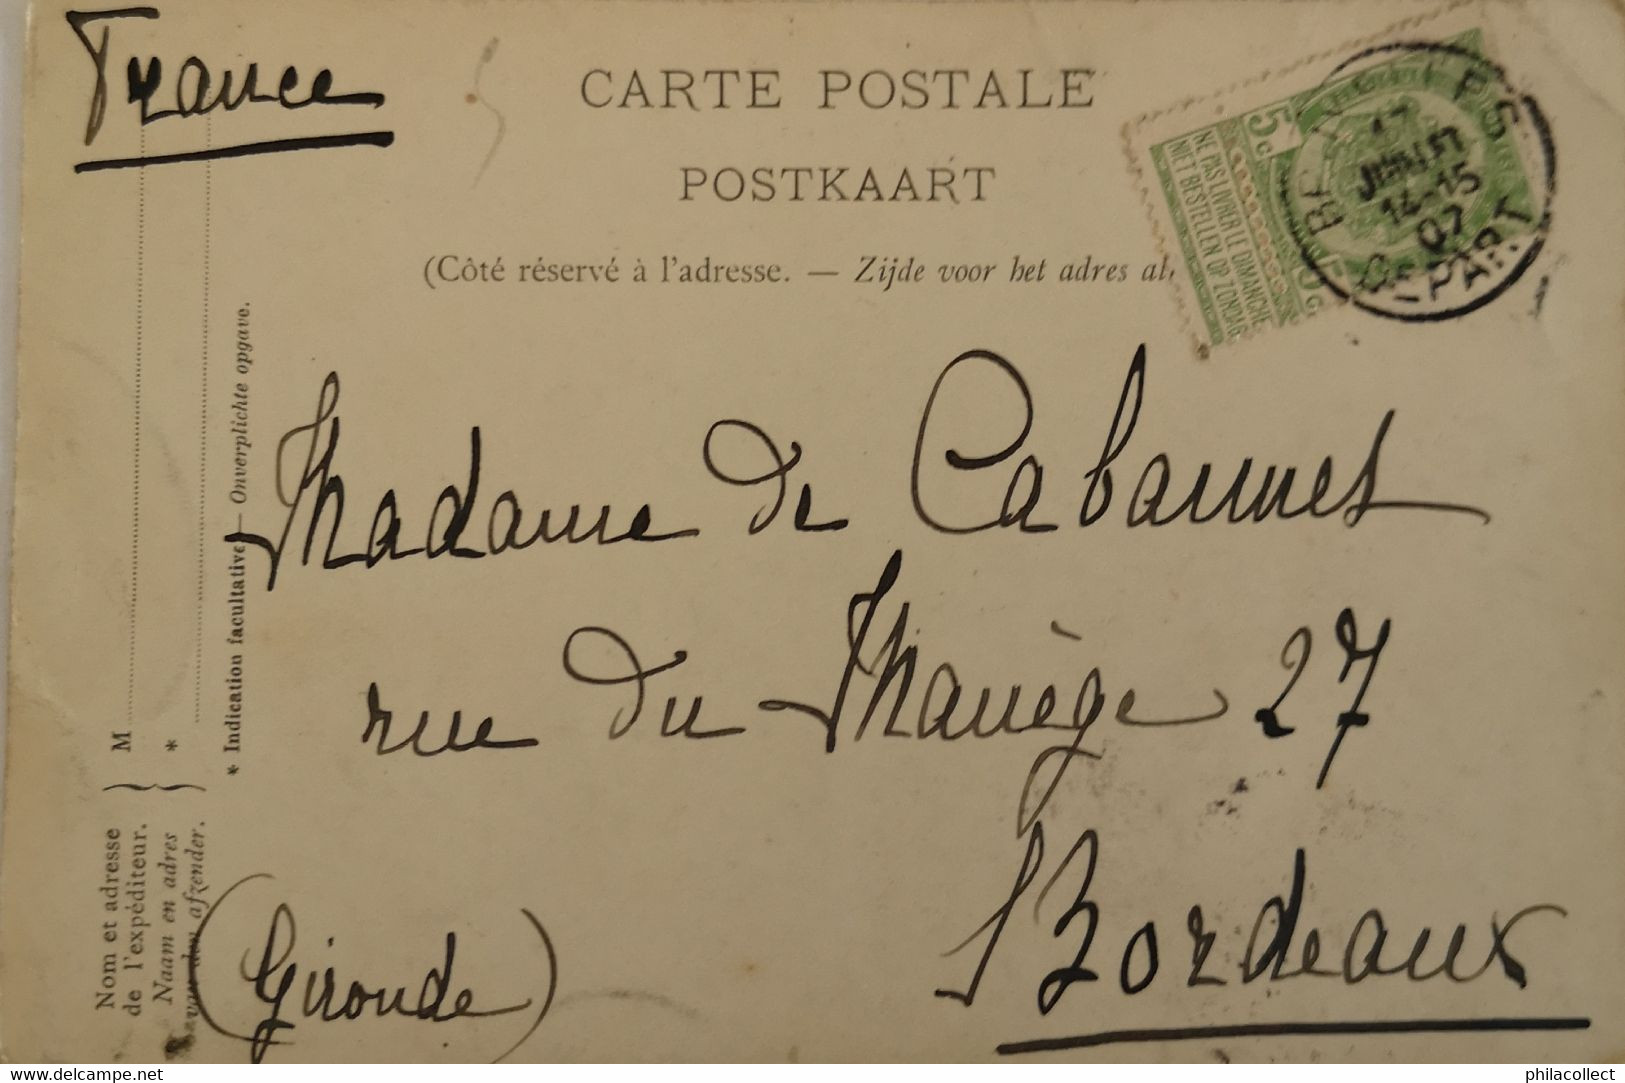 France
CARTE POSTALE
POSTKAART
(Côté réservé à l'adresse. — Zijde voor het adres
5c
NE PAS LIVRER LE DIMANCHE
NIET BESTELLEN OP ZONDAG
17
JUILLET
14-15
07
DEPART
Madame de Cabannes
rue du Manège 27
Bordeaux
(Gironde)
* Indication facultative — Onverplichte opgave.
M
*
Nom et adresse
de l'expéditeur.
Naam en adres
van den afzender.
philacollect.delcampe.net
philacollect